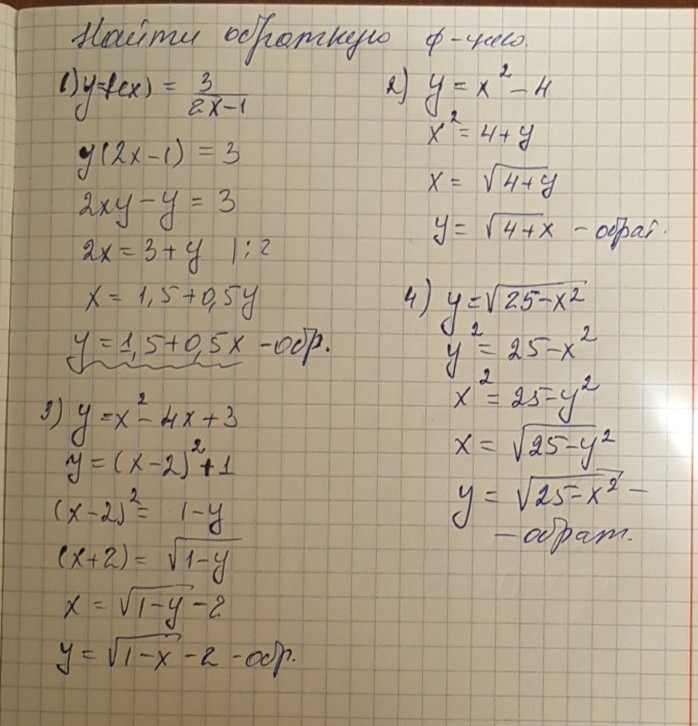 Найти обратную ф-цию.
1) y=f(x) = 3/(2x-1)
y(2x-1) = 3
2xy-y = 3
2x = 3+y |:2
x = 1,5+0,5y
y = 1,5+0,5x - обр.
2) y = x² - 4
x² = 4+y
x = √(4+y)
y = √(4+x) - обрат.
3) y = x² - 4x + 3
y = (x-2)² + 1
(x-2)² = 1-y
(x+2) = √(1-y)
x = √(1-y) - 2
y = √(1-x) - 2 - обр.
4) y = √(25-x²)
y² = 25-x²
x² = 25-y²
x = √(25-y²)
y = √(25-x²) -
- обрат.